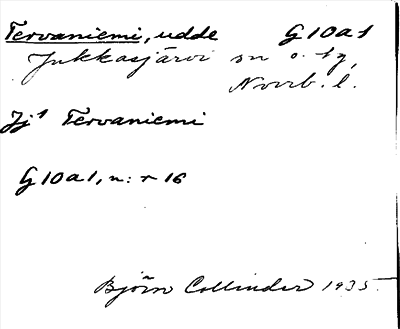 Tervaniemi, udde G10a1
Jukkasjärvi sn o. tg,
Norrb. l.
Jj¹ Tervaniemi
G10a1, n:r 16
Björn Collinder 1935